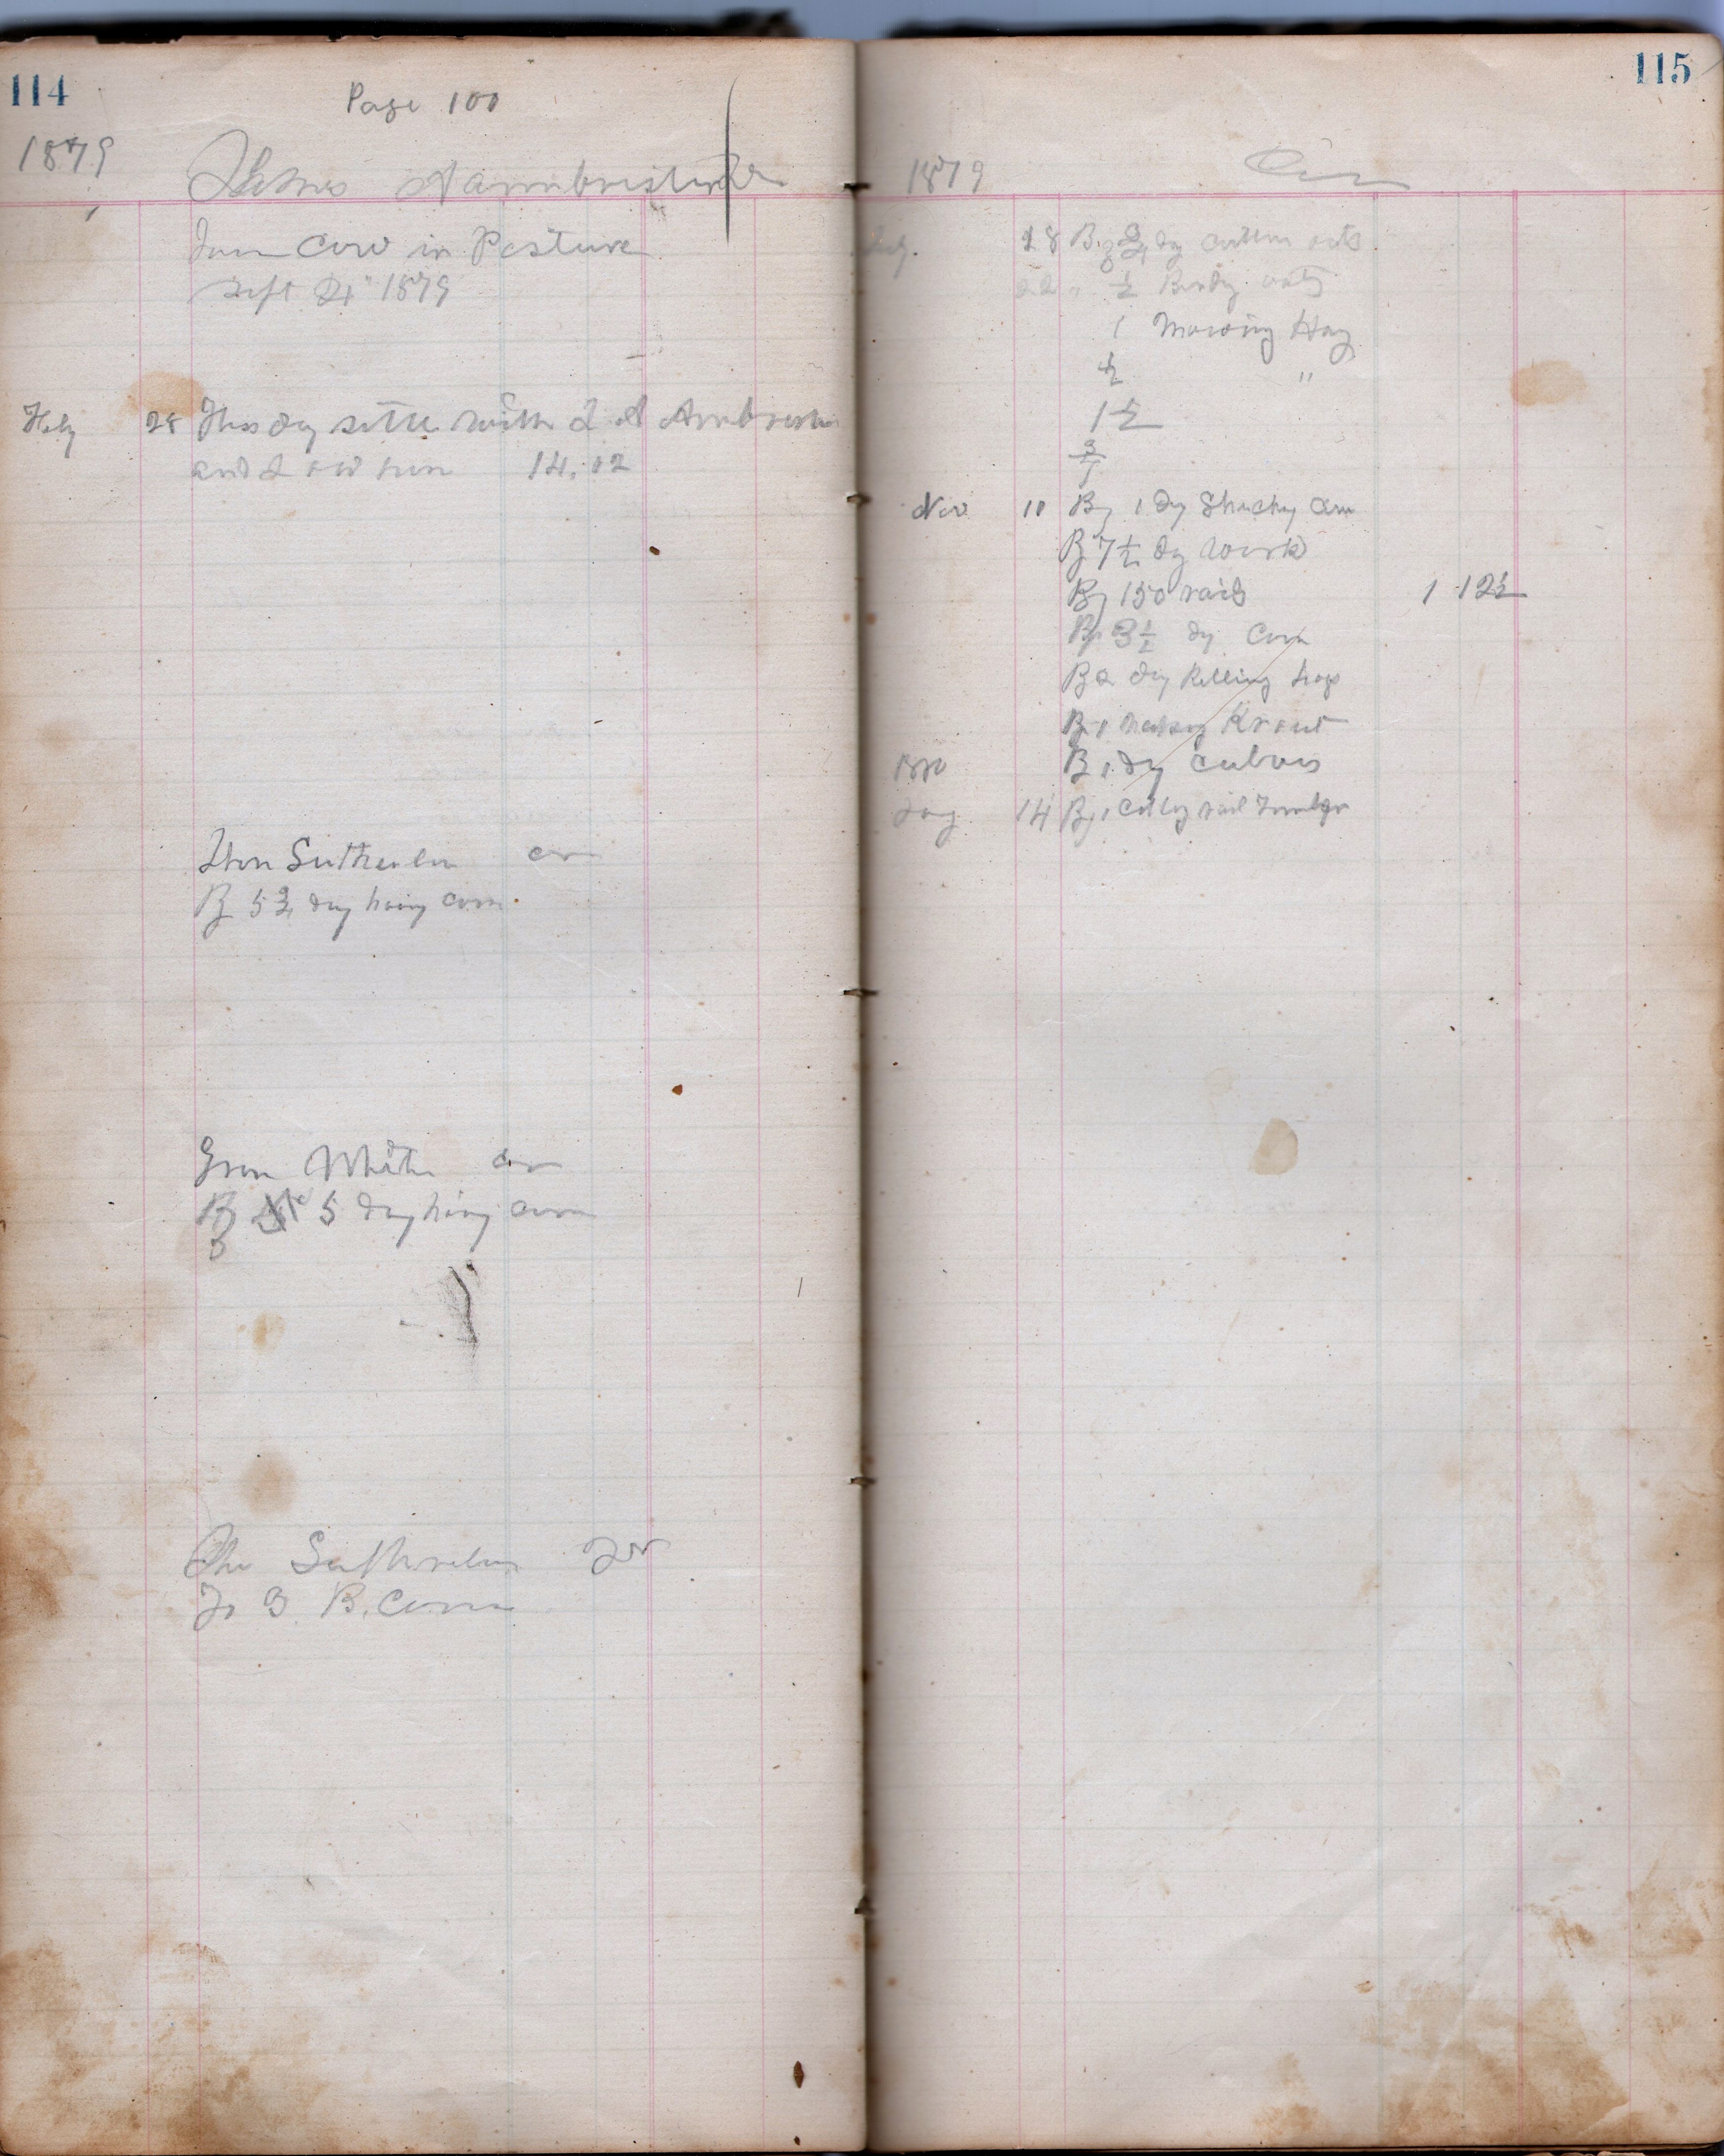 114
Page 100
1879
James Aarmbrister Dr
Turn Cow in Pasture
Sept 21" 1879
Feby 28 This day settle with J A Armbrister
and I owe him 14.02
Thon Sutherlin cr
By 5 3/4 day hoing corn
Gron White cr
By 5 day hoing corn
Sutherlin Dr
To 3 B. Corn
115
1879 Cr
18 By 3/4 dy cutten oats
22 " 1/2 Bindg oats
1 Mowing Hay
1/2 "
1 1/2
Nov 11 By 1 Dy Shuckg corn
By 7 1/2 dy work
By 150 rails 1 12 1/2
By 3 1/2 dy Corn
By 2 dy Killing hogs
By 1 making Kraut
1880 By 1 dy
14 By 1 cutting rail Timber